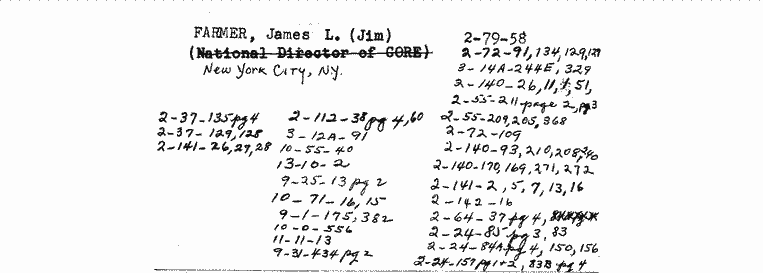 FARMER, James L. (Jim)
(National Director of CORE)
New York City, NY.
2-37-135 pg 4
2-37-129, 128
2-141-26, 27, 28
2-112-38 pg 4, 60
3-12A-91
10-55-40
13-10-2
9-25-13 pg 2
10-71-16, 15
9-1-175, 382
10-0-556
11-11-13
9-31-434 pg 2
2-79-58
2-72-91, 134, 129,
3-14A-244E, 329
2-140-26, 11, 51,
2-55-211-page 2, pg3
2-55-209, 205, 368
2-72-109
2-140-93, 210, 208,
2-140-170, 169, 271, 272
2-141-2, 5, 7, 13, 16
2-142-16
2-64-37 pg 4,
2-24-85 pg 3, 83
2-24-84A pg 4, 150, 156
2-24-157 pg 1+2, 83B pg 4